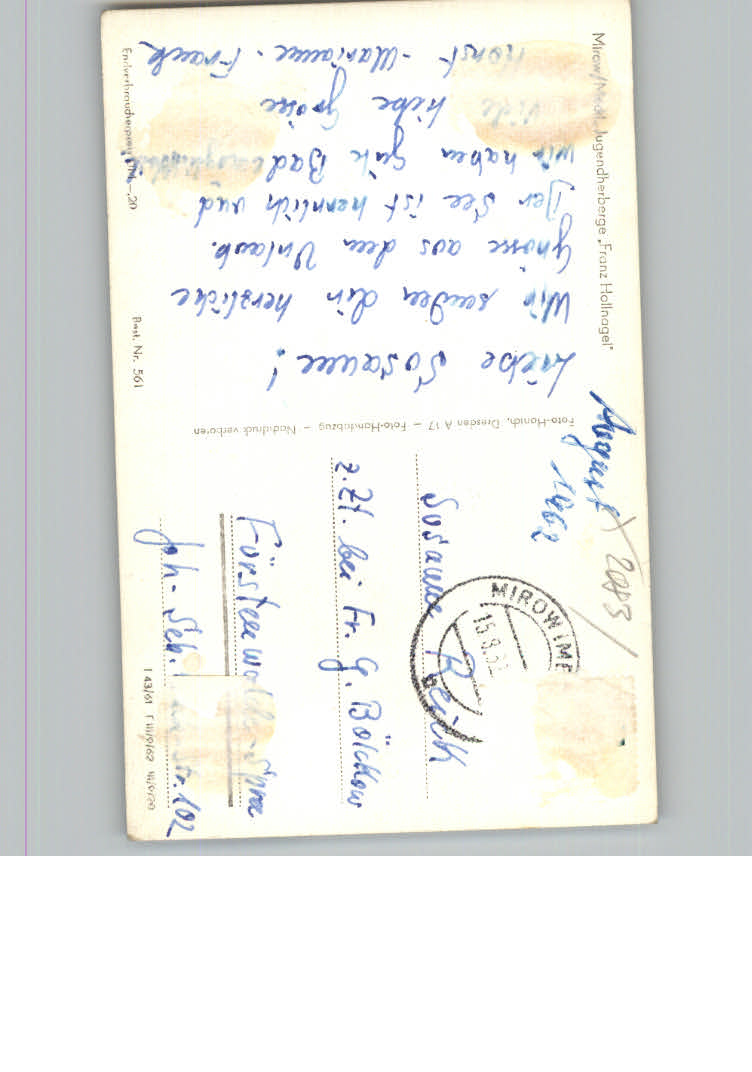 Mirow/Meckl. Jugendherberge „Franz Hollnagel"
Liebe Susanne!
Wir senden dir herzliche
Grüsse aus dem Urlaub.
Der See ist herrlich und
wir haben gute
viele liebe Grüsse
Horst - Marianne - Frank
Endverbraucherpreis –,20
Best. Nr. 561
Foto-Hanich, Dresden A 17 – Foto-Handabzug – Nachdruck verboten
August
1962
MIROW (ME
15.8.62
Susanne Reich
z. Zt. bei Fr. G. Bölkow
Fürstenwalde Spree
Joh. Seb. Str. 102